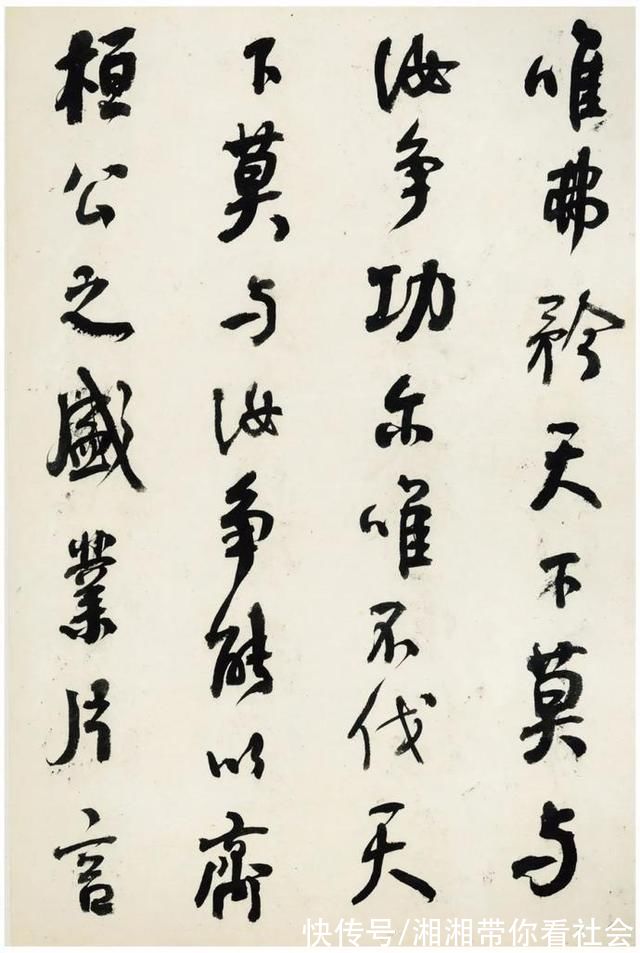 唯弗矜天下莫与
汝争功尔唯不伐天
下莫与汝争能以齊
桓公之盛業片言
快传号/湘湘带你看社会